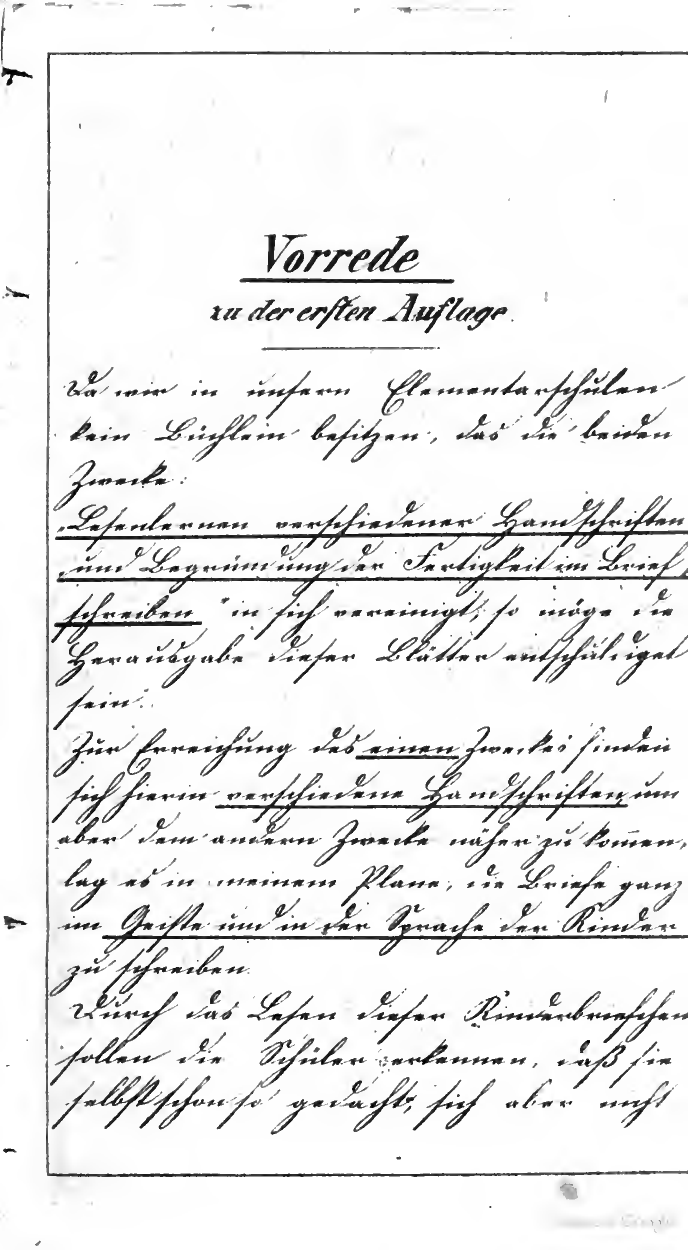 Vorrede
zu der ersten Auflage.
Da wir in unsern Elementarschulen
kein Büchlein besitzen, das die beiden
Zwecke:
„Lesenlernen verschiedener Handschriften
„und Begründung der Fertigkeit im Brief„
schreiben" in sich vereinigt, so möge die
Herausgabe dieser Blätter entschuldiget
sein.
Zur Erreichung des einen Zweckes finden
sich hierin verschiedene Handschriften, um
aber dem andern Zwecke näher zu kom̄en,
lag es in meinem Plane, die Briefe ganz
im Geiste und in der Sprache der Kinder
zu schreiben.
Durch das Lesen dieser Kinderbriefchen
sollen die Schüler erkennen, daß sie
selbst schon so gedacht, sich aber nicht